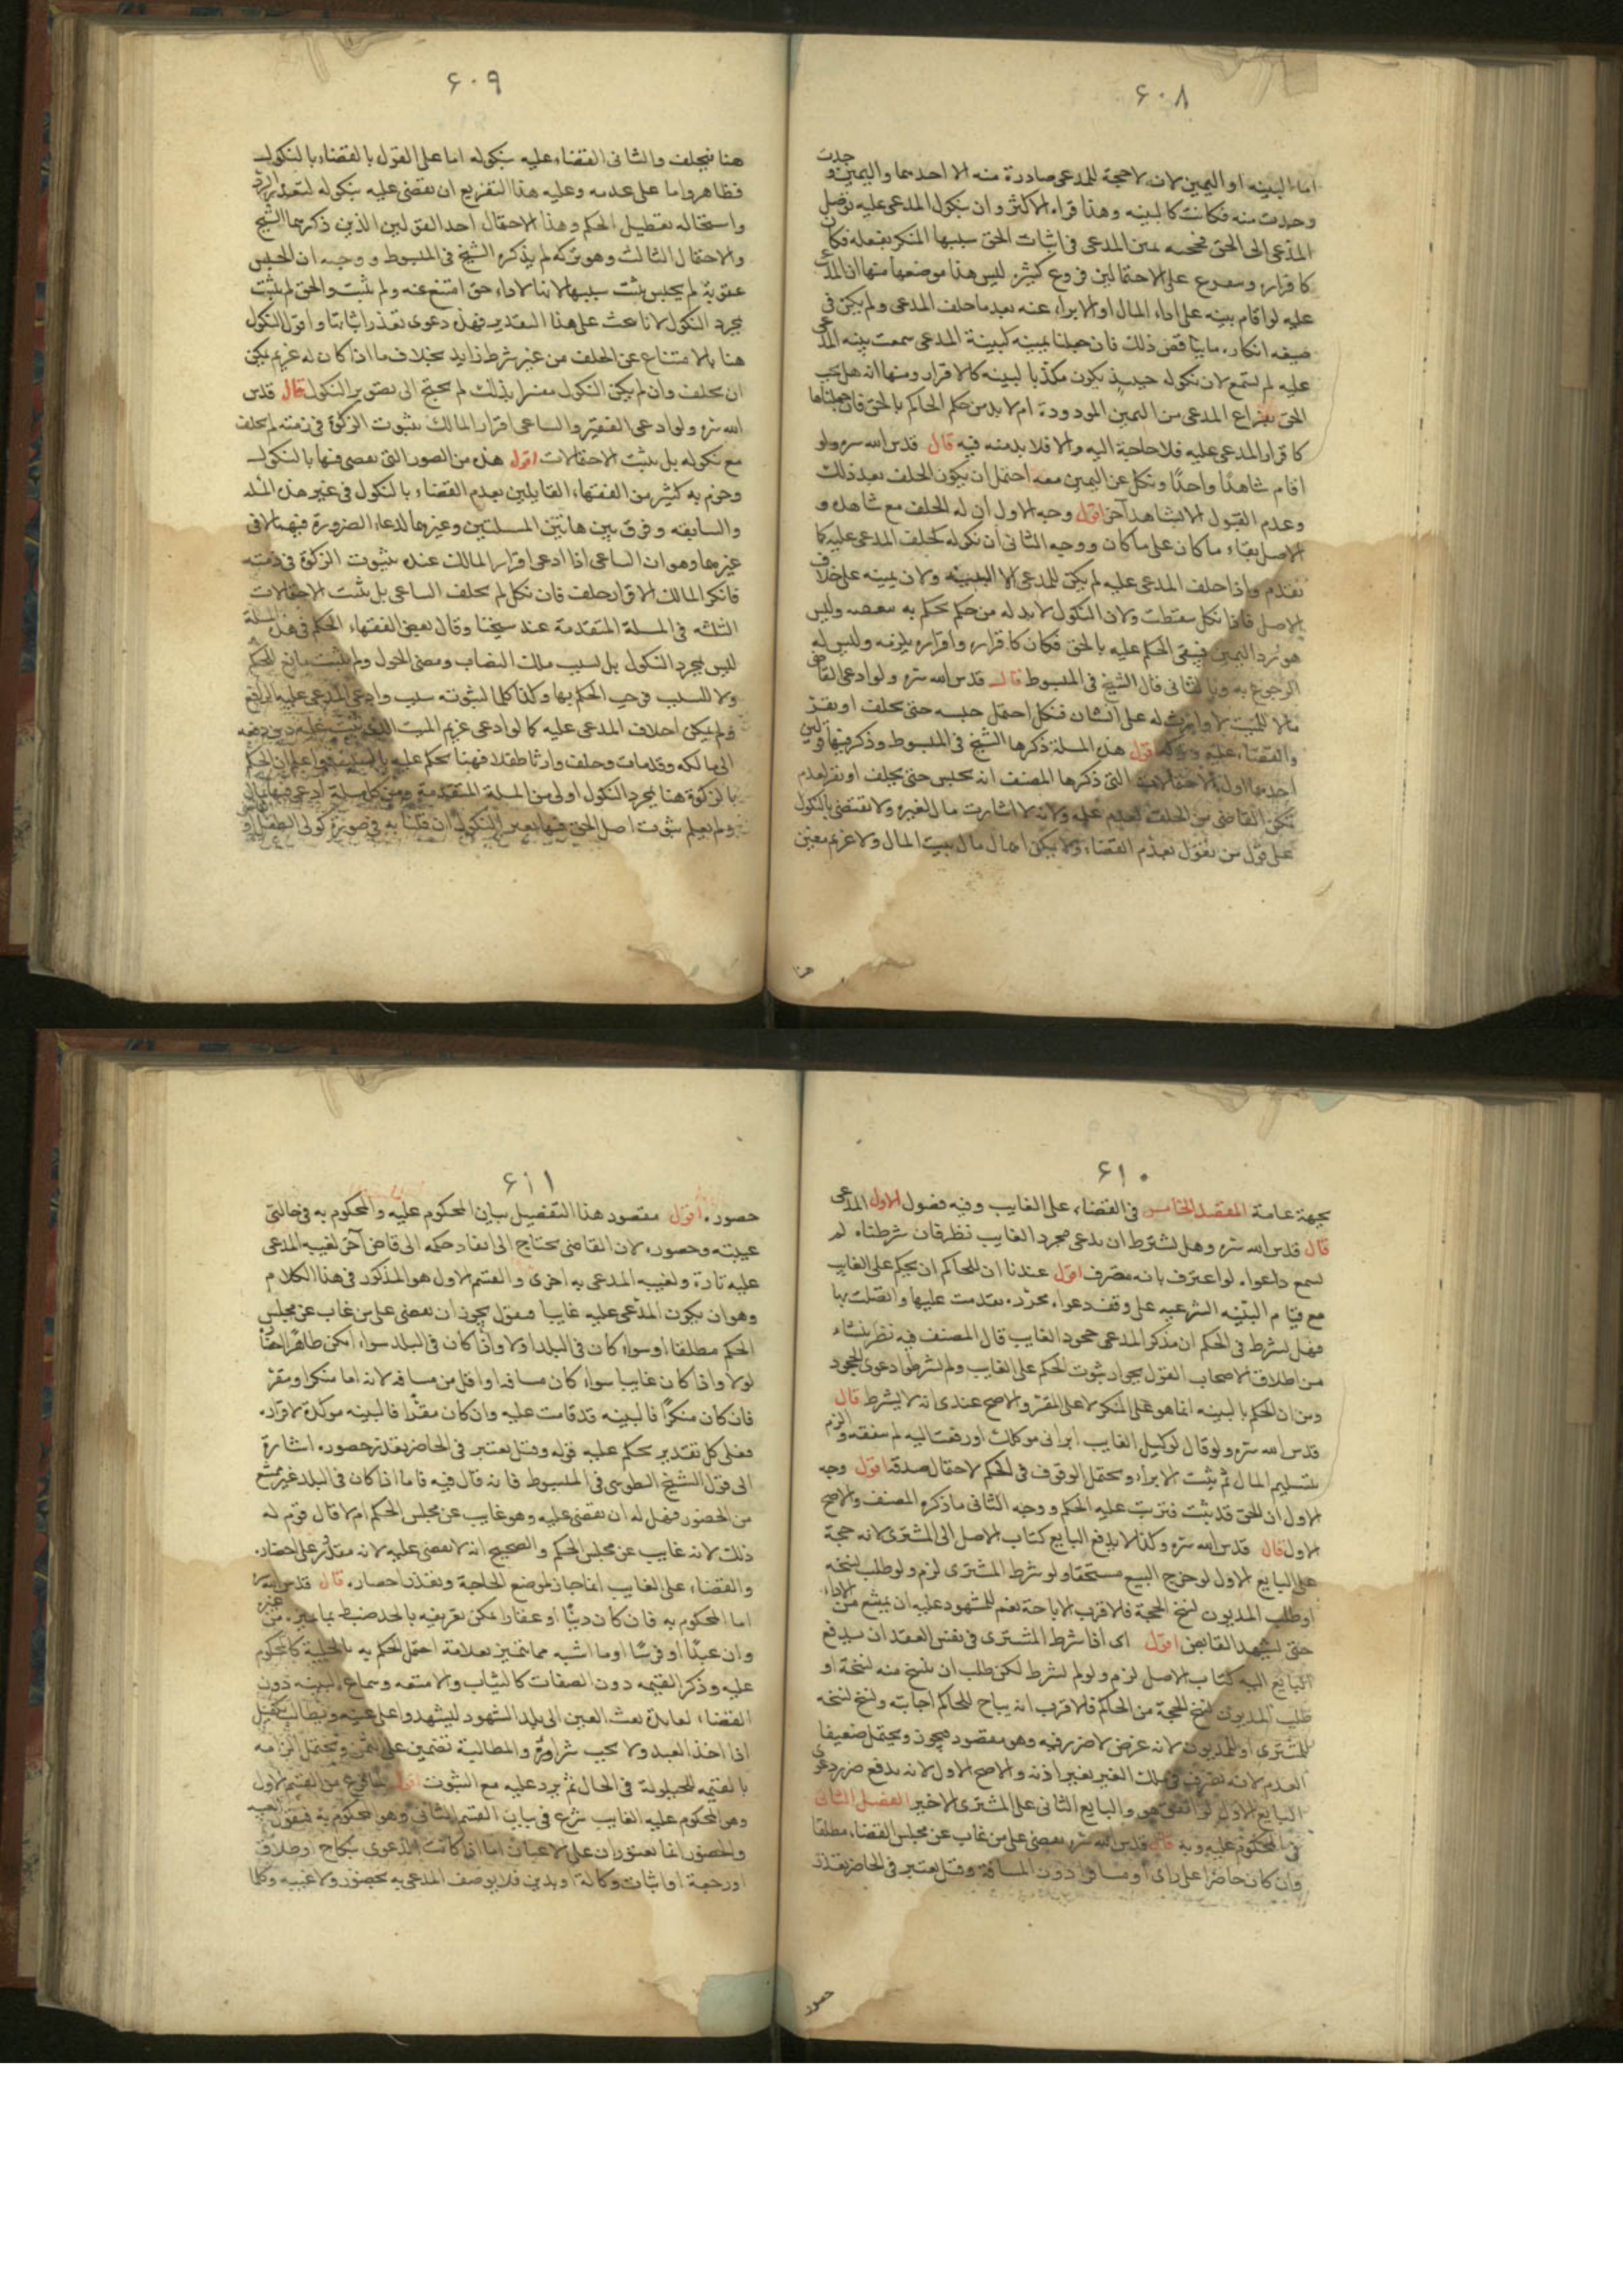 ٦٠٨
اما البينه او اليمين لان لا حجة للمدعى صادرة منه الا احدهما واليمين و
جدت
وحدت منه فكانت كالبينه وهذا قراء الاكثر وان بنكول المدعى عليه توصل
المدعى الى الحق يمين المدعى فى اثبات الحق سببها المنكر بفعله فكان
كاقراره على الاحتمالين فروع كثيرة ليس هذا موضعها منها ان المدعى
عليه لو اقام بينه على اداء المال او الابراء عنه بعد ما حلف المدعى ولم يكن فى
صيغه انكاره ما يناقض ذلك فان جعلنا يمينه كبينة المدعى سمعت بينه المدعى
عليه لم تسمع لان نكوله حينئذ يكون مكذبا لبينه كالاقرار ومنها انه هل يجب
الحق بفراغ المدعى من اليمين المردودة ام لا بد من حكم الحاكم بالحق فان جعلناها
كاقرار المدعى عليه فلا حاجة اليه والا فلا بد منه فيه قال قدس الله سره ولو
اقام شاهدًا واحدًا ونكل عن اليمين معه احتمل ان يكون الحلف بعد ذلك
وعدم القبول الا بشاهد آخر اقول وجه الاول ان له الحلف مع شاهده و
الاصل بقاء ما كان على ما كان ووجه الثانى ان نكوله كحلف المدعى عليه كما
تقدم واذا حلف المدعى عليه لم يكن للمدعى الا البينه ولان يمينه على خلاف
الاصل فاذا نكل سقطت ولان النكول لا بد له من حكم يحكم به وليس
هو رد اليمين فيبقى الحكم عليه بالحق فكان كاقراره واقراره يلزمه وليس له
الرجوع به وبالثانى قال الشيخ فى المبسوط قال قدس الله سره ولو ادعى القاضى
مالا للميت لا وارث له على انسان فنكل احتمل حبسه حتى يحلف او يقر
والقضاء عليه وتركه اقول هذه المسلة ذكرها الشيخ فى المبسوط وذكر فيها قولين
احدهما اول الاحتمالات التى ذكرها المصنف انه يحبس حتى يحلف او يقر لعدم
تمكن القاضى من الحلف لعدم علمه ولانه لا اثبات مال لغيره ولا يقتضى بالنكول
على قول من يقول بعدم القضاء ولا يمكن اهمال مال بيت المال ولا غريم معين
هنا
٦٠٩
هنا فيحلف والثانى القضاء عليه بنكوله اما على القول بالقضاء بالنكول
فظاهر واما على عدمه وعليه هذا التفريع ان يقضى عليه بنكوله لتعذر الرد
واستحاله تعطيل الحكم وهذا الاحتمال احد القولين الذين ذكرهما الشيخ
والاحتمال الثالث وهو تركه لم يذكره الشيخ فى المبسوط ووجهه ان الحبس
عقوبة لم يحبس بثبت سببها لانا لاداء حق امتنع عنه ولم يثبت والحق لم يثبت
بمجرد النكول لانا نبحث على هذا التقدير فهذه دعوى تعذر اثباتها واقول النكول
هنا بالامتناع عن الحلف من غير شرط زايد بخلاف ما اذا كان له غريم يمكن
ان يحلف وان لم يكن النكول مفسرا بذلك لم يحتج الى تصوير النكول قال قدس
الله سره ولو ادعى الفقير والساعى اقرار المالك بثبوت الزكوة فى ذمته لم يحلف
مع نكوله بل تثبت الاحتمالات اقول هذه من الصور التى يقضى فيها بالنكول
وجزم به كثير من الفقهاء القايلين بعدم القضاء بالنكول فى غير هذه المسله
والسابقه وفرق بين هاتين المسلتين وغيرهما لدعاء الضرورة فيهما لا فى
غيرهما وهو ان الساعى اذا ادعى اقرار المالك عنده بثبوت الزكوة فى ذمته
فانكر المالك الاقرار حلف فان نكل لم يحلف الساعى بل تثبت الاحتمالات
الثلثه فى المسلة المتقدمة عند شيخنا وقال بعض الفقهاء الحكم فى هذه المسلة
ليس بمجرد النكول بل لسبب ملك النصاب ومضى الحول ولم يثبت مانع للحكم
ولا للسبب فيجب الحكم بها وكذا كلما لثبوته سبب وادعى المدعى عليه المانع
ولم يمكن احلاف المدعى عليه كما لو ادعى غريم الميت الذى ثبت عليه دين دفعه
الى مالكه وقد مات وخلف وارثا طفلا فهنا يحكم عليه واعلم ان الحكم
بالزكوة هنا بمجرد النكول اولى من المسلة المتقدمة ومن كل مسلة ادعى فيها مال
ولم يعلم ثبوت اصل الحق فيها بغير النكول ان قلنا به فى صورة كولى الطفل او
٦١٠
بجهة عامة المقصد الخامس فى القضاء على الغايب وفيه فصول الاول المدعى
قال قدس الله سره وهل يشترط ان يدعى جحود الغايب نظر فان شرطناه لم
تسمع دعواه لو اعترف بانه معترف اقول عندنا ان للحاكم ان يحكم على الغايب
مع قيام البينه الشرعيه على وفق دعواه محرره تقدمت عليها واتصلت بها
فهل يشترط فى الحكم ان يذكر المدعى جحود الغايب قال المصنف فيه نظر ينشاء
من اطلاق الاصحاب القول بجواز ثبوت الحكم على الغايب ولم يشرطوا دعوى الجحود
ومن ان الحكم بالبينه انما هو على المنكر لا على المقر والاصح عندى انه لا يشترط قال
قدس الله سره ولو قال لوكيل الغايب ابرانى موكلك او دفعت اليه لم ينفعه والزم
بتسليم المال ثم يثبت الابراء ويحتمل الوقوف فى الحكم لاحتمال صدقه اقول وجه
الاول ان الحق قد ثبت فترتب عليه الحكم ووجه الثانى ما ذكره المصنف والاصح
الاول قال قدس الله سره وكذا لا يدفع البايع كتاب الاصل الى المشترى لانه حجة
على البايع الاول لو خرج المبيع مستحقا ولو شرط المشترى لزم ولو طلب نسخه
او طلب المديون نسخ الحجة فالاقرب الاباحة نعم للمشهود عليه ان يمتنع من الاداء
حتى يشهد القابض اقول اى اذا شرط المشترى فى نفس العقد ان يدفع
البايع اليه كتاب الاصل لزم ولو لم يشرط لكن طلب ان ينسخ منه نسخة او
طلب المديون نسخ الحجة من الحاكم فالاقرب انه يباح للحاكم اجابته ونسخ نسخه
للمشترى او للمديون لانه غرض لا ضرر فيه وهو مقصود فيجوز ويحتمل ضعيفا
العدم لانه تصرف فى ملك الغير بغير اذنه والاصح الاول لانه يدفع ضرر دعوى
البايع الاول لو اتفق هو والبايع الثانى على المشترى الاخير الفصل الثانى
فى المحكوم عليه وبه قال قدس الله سره يقضى على من غاب عن مجلس القضاء مطلقا
وان كان حاضرا على راى او مسافرا دون المسافة وقيل يعتبر فى الحاضر تعذر
حضوره
٦١١
حضوره اقول مقصود هذا التفصيل بيان المحكوم عليه والمحكوم به فى حالتى
غيبته وحضوره لان القاضى يحتاج الى انفاد حكمه الى قاض آخر لغيبه المدعى
عليه تارة ولغيبه المدعى به اخرى والقسم الاول هو المذكور فى هذا الكلام
وهو ان يكون المدعى عليه غايبا فنقول يجوز ان يقضى على من غاب عن مجلس
الحكم مطلقا اى سواء كان فى البلد او لا واذا كان فى البلد سواء امكن احضاره
او لا واذا كان غايبا سواء كان مسافه او اقل من مسافه لانه اما منكر او مقر
فان كان منكرًا فالبينه قد قامت عليه وان كان مقرًا فالبينه موكدة لاقراره
فعلى كل تقدير يحكم عليه قوله وقيل يعتبر فى الحاضر تعذر حضوره اشارة
الى قول الشيخ الطوسى فى المبسوط فانه قال فيه فاما اذا كان فى البلد غير ممتنع
من الحضور فهل له ان يقضى عليه وهو غايب عن مجلس الحكم ام لا قال قوم له
ذلك لانه غايب عن مجلس الحكم والصحيح انه لا يقضى عليه لانه مقدور على احضاره
والقضاء على الغايب انما جاز لموضع الحاجة وتعذر احضاره قال قدس الله سره
اما المحكوم به فان كان دينًا او عقارا يمكن تعريفه بالحد ضبط بما يميزه عن غيره
وان عبدًا او فرسًا او ما اشبه مما يتميز بعلامة احتمل الحكم به بالحلية كالمحكوم
عليه وذكر القيمه دون الصفات كالثياب والامتعه وسماع البينه دون
القضاء لفايدة بعث العين الى بلد الشهود ليشهدوا على عينه ويطالب بكفيل
اذا اخذ العبد ولا يجب شراؤه والمطالبة بتضمين على الثمن ويحتمل الزامه
بالقيمه للحيلولة فى الحال ثم يرد عليه مع الثبوت اقول لما فرغ من القسم الاول
وهو المحكوم عليه الغايب شرع فى بيان القسم الثانى وهو المحكوم به فيقول الغيبه
والحضور انما يعتوران على الاعيان اما اذا كانت الدعوى بنكاح او طلاق
او رجعة او اثبات وكالة او بدين فلا يوصف المدعى به بحضور ولا غيبه وكلما